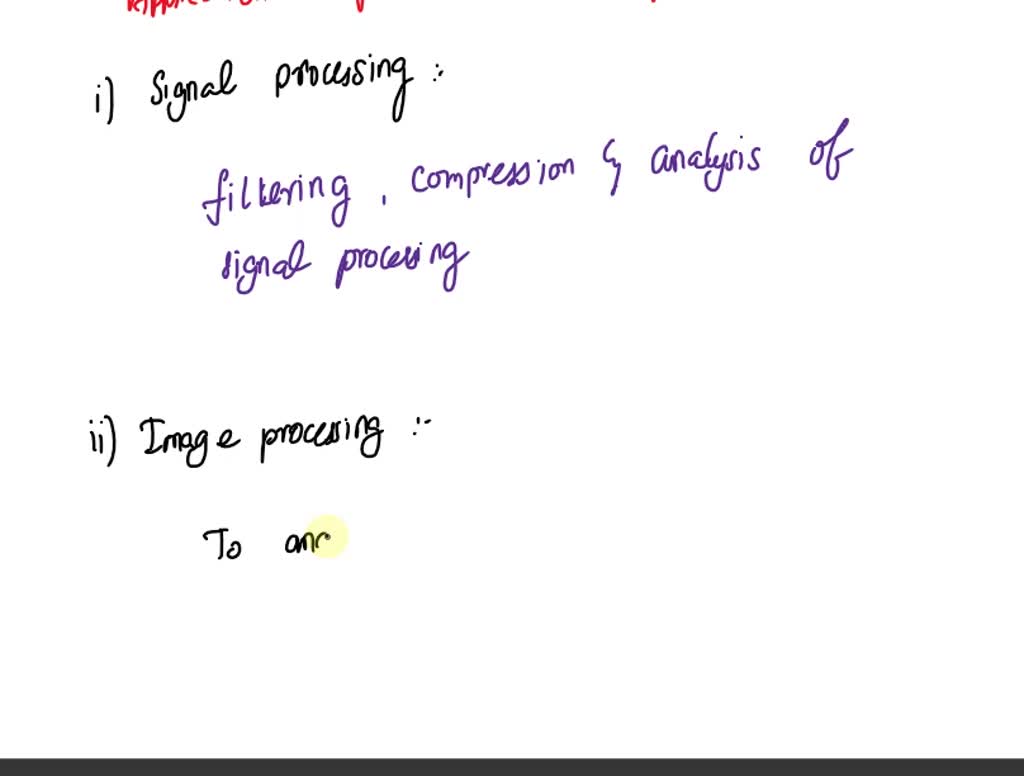 i) Signal processing :-
filtering, compression & analysis of
signal procesing
ii) Image processing :-
To ana